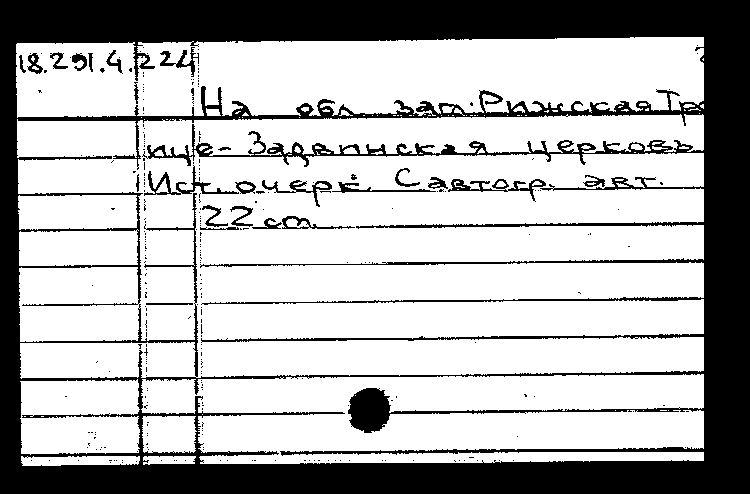 18.291.4.224 2
На обл. загл.: Рижская Тро
ице-Задвинская церковь.
Ист. очерк. С автогр. авт.
22 cm.